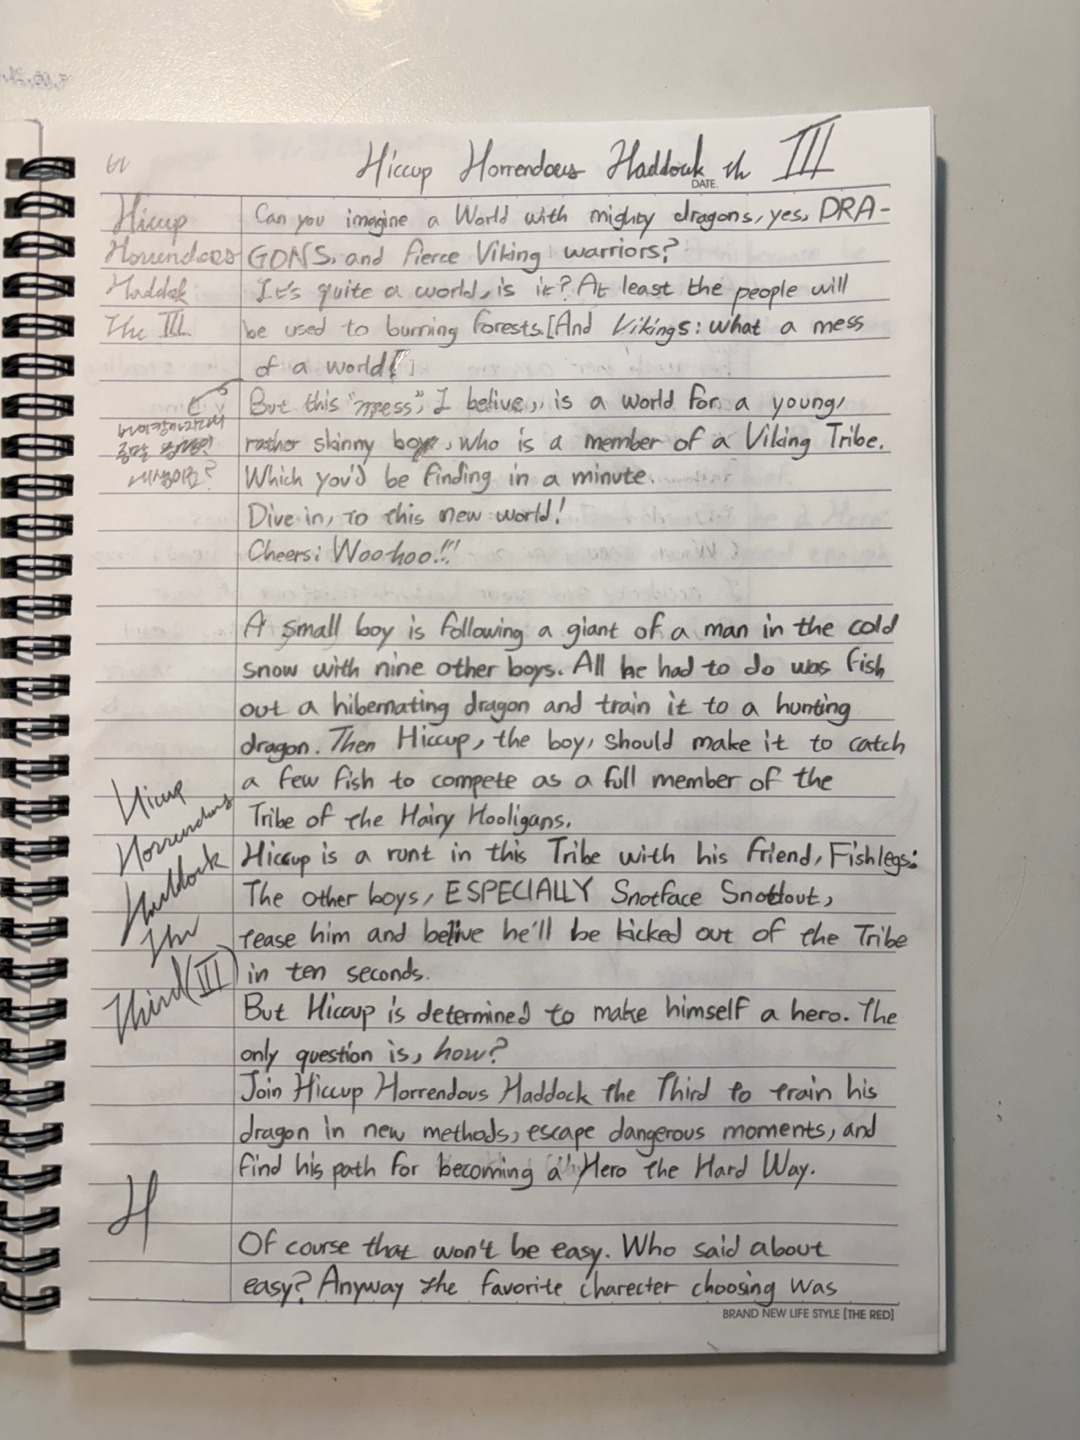 Hiccup Horrendous Haddock th III
DATE.
Hiccup
Horrendous
Haddok
The III
Can you imagine a World with mighty dragons, yes, DRA-
GONS, and fierce Viking warriors?
It's quite a world, is it? At least the people will
be used to burning forests.[And Vikings: what a mess
of a world!]
But this "mess", I belive, is a world for a young,
rather skinny boy, who is a member of a Viking Tribe.
Which you'd be finding in a minute.
Dive in, to this new world!
Cheers: Woohoo!!!
A small boy is following a giant of a man in the cold
snow with nine other boys. All he had to do was fish
out a hibernating dragon and train it to a hunting
dragon. Then Hiccup, the boy, should make it to catch
a few fish to compete as a full member of the
Tribe of the Hairy Hooligans.
Hiccup is a runt in this Tribe with his friend, Fishlegs.
The other boys, ESPECIALLY Snotface Snotlout,
tease him and belive he'll be kicked out of the Tribe
in ten seconds.
But Hiccup is determined to make himself a hero. The
only question is, how?
Join Hiccup Horrendous Haddock the Third to train his
dragon in new methods, escape dangerous moments, and
find his path for becoming a Hero the Hard Way.
Hiccup
Horrendous
Haddock
The
Third (III)
H
Of course that won't be easy. Who said about
easy? Anyway the favorite charecter choosing was
BRAND NEW LIFE STYLE [THE RED]